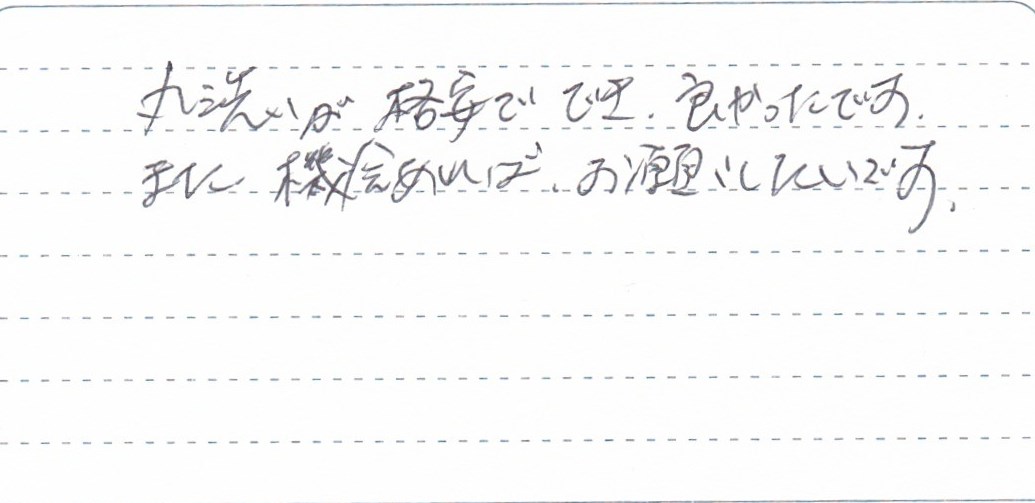 丸洗いが格安ででき、良かったです。
また機会あれば、お願いしたいです。